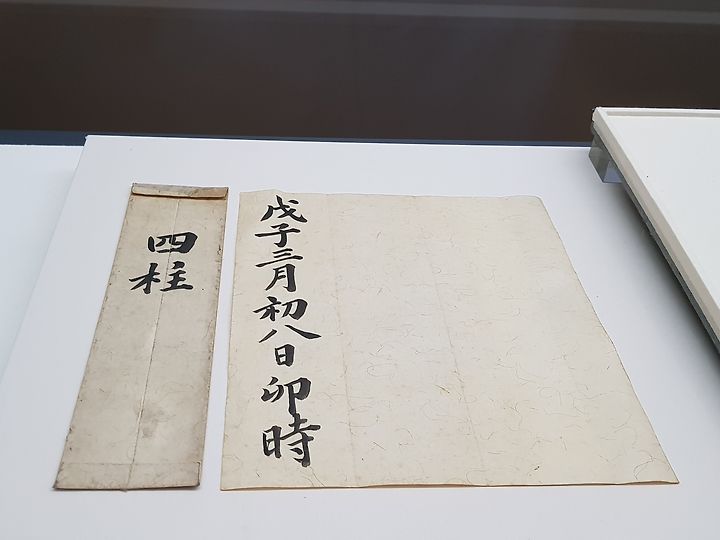 四柱
戊子三月初八日卯時